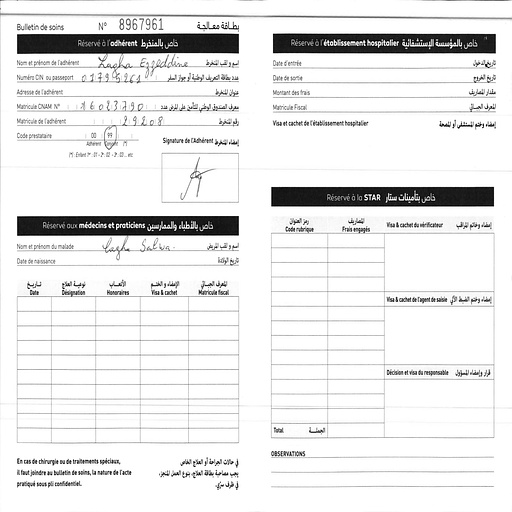 Bulletin de soins N° 8967961 بطاقة معالجة
Réservé à l'adhérent خاص بالمنخرط
Nom et prénom de l'adhérent Lagha Ezzeddine اسم و لقب المنخرط
Numéro CIN ou passeport 01795961 عدد بطاقة التعريف الوطنية أو جواز السفر
Adresse de l'adhérent عنوان المنخرط
Matricule CNAM N° 16023790 معرف الصندوق الوطني للتأمين على المرض عدد
Matricule de l'adhérent 29208 رقم المنخرط
Code prestataire 00 99
Adhérent Conjoint (*)
(*) : Enfant 1er : 01 - 2è : 02 - 3è : 03 ... etc
Signature de l'Adhérent إمضاء المنخرط
Réservé aux médecins et praticiens خاص بالأطباء والممارسين
Nom et prénom du malade Lagha Salwa. اسم و لقب المريض
Date de naissance تاريخ الولادة
تاريخ نوعية العلاج الأتعاب الإمضاء و الختم المعرف الجبائي
Date Désignation Honoraires Visa & cachet Matricule fiscal
En cas de chirurgie ou de traitements spéciaux,
il faut joindre au bulletin de soins, la nature de l'acte
pratiqué sous pli confidentiel.
في حالات الجراحة أو العلاج الخاص
يجب مصاحبة بطاقة العلاج، بنوع العمل المنجز،
في ظرف سري.
Réservé à l'établissement hospitalier خاص بالمؤسسة الإستشفائية
Date d'entrée تاريخ الدخول
Date de sortie تاريخ الخروج
Montant des frais مقدار المصاريف
Matricule Fiscal المعرف الجبائي
Visa et cachet de l'établissement hospitalier إمضاء وختم المستشفى أو المصحة
Réservé à la STAR خاص بتأمينات ستار
رمز العنوان المصاريف
Code rubrique Frais engagés
Visa & cachet du vérificateur إمضاء وخاتم المراقب
Visa & cachet de l'agent de saisie إمضاء وختم الضبط الآلي
Décision et visa du responsable قرار وإمضاء المسؤول
Total الجملة
OBSERVATIONS